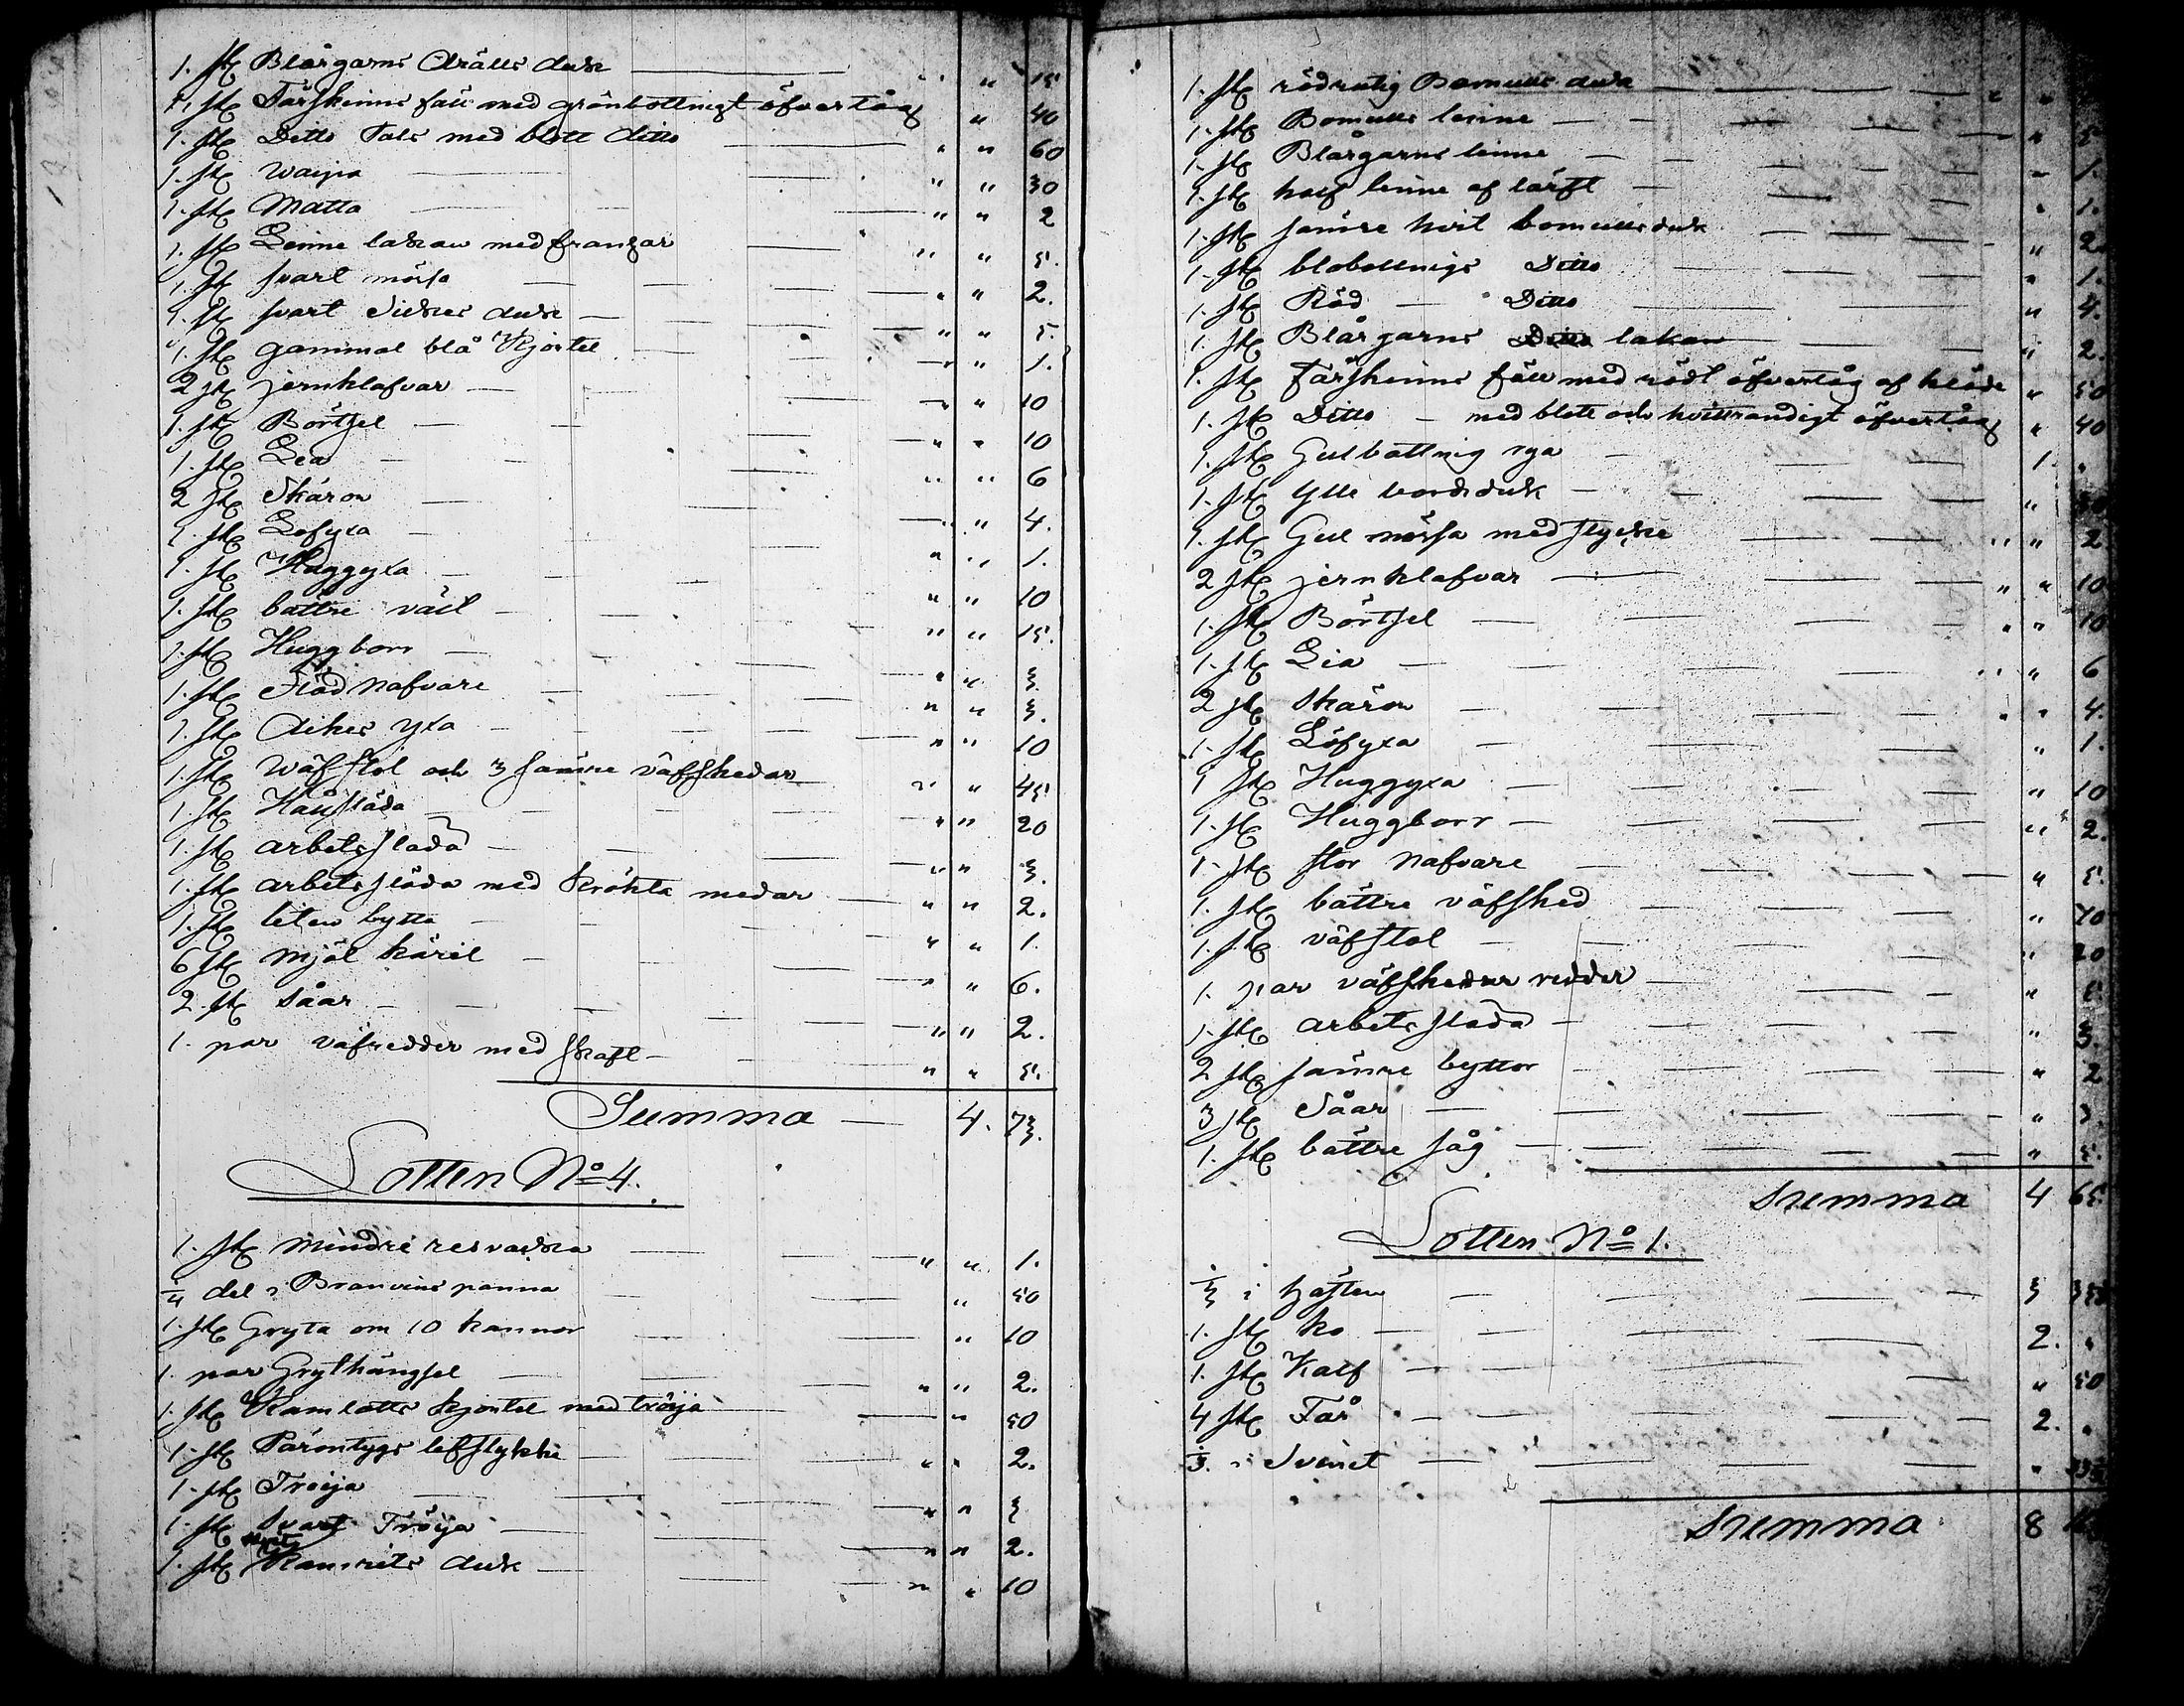 1. st Blårgarns dräll duk " " 15
1. st Fårskinns fäll med grönbottnigt öfvertåg " 40
1. st Ditto Fäll med blott ditto " " 60
1. st Waija " " 30
1. st Matta " " 2
1. st Linne lakan med franzar " " 5.
1. st svart mössa " " 2.
1. st svart Silkes duk " " 5.
1. st gammal blå Kjortel " " 1.
2 st jernklafvar " " 10
1. st Börtsel " " 10
1. st Lia " " 6
2 st Skäror " " 4.
1. st Löfyxa " " 1.
1. st Huggyxa " " 10
1. st bättre väil " " 15.
1. st Huggborr " " 3.
1. st Städ nafvare " " 3.
1. st dikes yxa " " 10
1. st Wäfstol och 3 sämre väfskedar " " 45
1. st Hausläda " " 20
1. st arbetsslada " " 3.
1. st arbetssläda med krökta medar " " 2.
1. st liten bytta " " 1.
6 st mjöl käril " " 6.
2 st såar " " 2.
1. par väfredder med skaft " " 5.
Summa 4. 73.
Lotten No 4.
1. st mindre resväska " " 1.
1/4 del i Bränvins panna " 50
1. st Gryta om 10 kannor " 10
1. par Grythängsel " " 2.
1. st Kamlotts kjortel med tröija " 50
1. st Pärontygs lifstykke " " 2.
1. st Tröija " " 3
1. st Svart Tröija " " 2.
1. st Kamrits duk " " 10
1. st rödrutig Bomulls duk " "
1. st Bomulls linne " 5
1. st Blårgarns linne " 1.
1. st half linne af lärft " 1.
1. st sämre hvit bomullsduk " 2.
1. st blåbottnigt Ditto " 1.
1. st Röd Ditto " 4.
1. st Blårgarns lakan " 2.
1. st Fårskinns fäll med rödt öfvertåg af kläde " 50
1. st Ditto med blott och hvittrandigt öfvertåg " 40
1. st Gulbottnig rya 1 "
1. st Ylle bordsduk " 50
1. st Gul mössa med stycke " " 2
2 st jernklafvar " " 10
1. st Börtsel " " 10
1. st Lia " " 6
2 st skäror " " 4.
1. st Löfyxa " 1.
1 st Huggyxa " 10
1. st Huggborr " 2.
1. st stor nafvare " 5.
1. st bättre väfsked " 70
1. st väfstol " 20
1. par väfskedar redder " 5
1. st arbetsslada " 3.
2 st sämre byttor " 2
3 st Såar " 3.
1. st bättre såg " 5.
Summa 4 65.
Lotten No 1.
1/3 i hästen 3
1. st ko 2. "
1. st Kalf " 50
4 st Får 2. "
1/3. i Svinet "
Summa 8